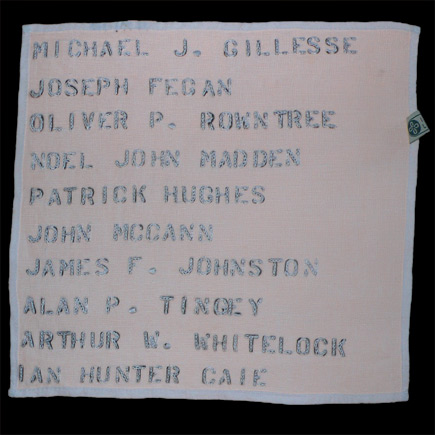 MICHAEL J. GILLESSE
JOSEPH FEGAN
OLIVER P. ROWNTREE
NOEL JOHN MADDEN
PATRICK HUGHES
JOHN MCCANN
JAMES F. JOHNSTON
ALAN P. TINGEY
ARTHUR W. WHITELOCK
IAN HUNTER CAIE